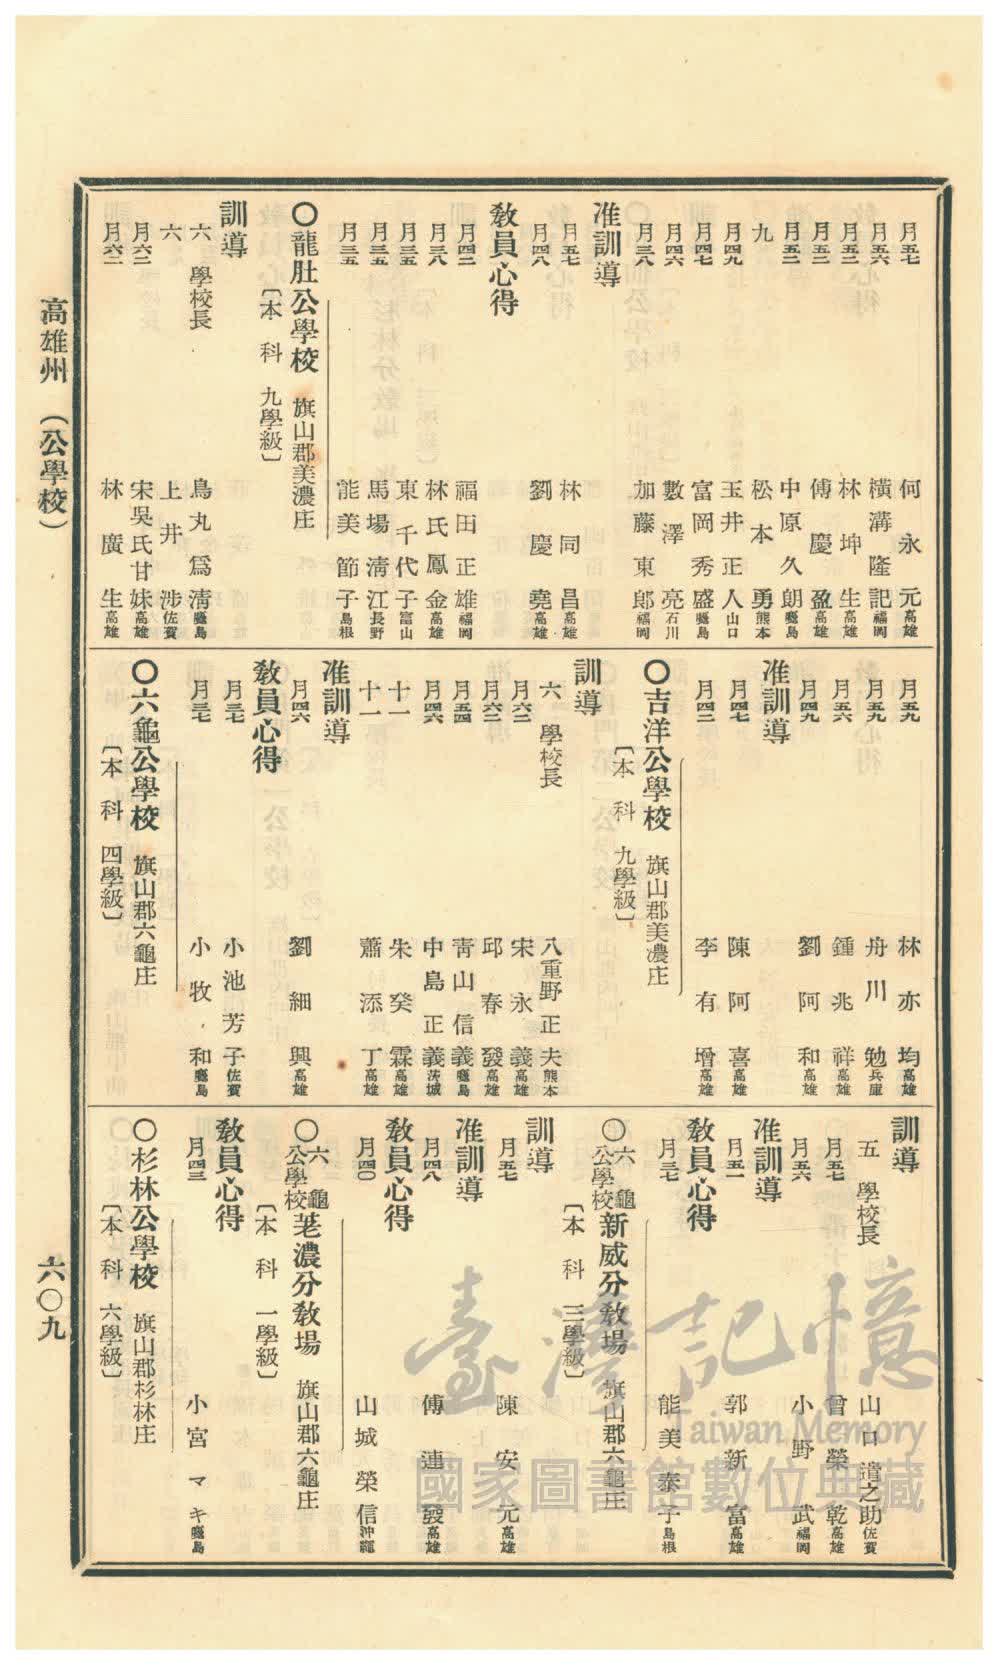 月五七 何永元 高雄
月五六 橫溝隆記 福岡
月五二 林坤生 高雄
月五二 傅慶盈 高雄
月五二 中原久朗 鹿兒島
九 松本勇 熊本
月四九 玉井正人 山口
月四七 富岡秀盛 鹿兒島
月四六 數澤亮 石川
月三八 加藤東郎 福岡
准訓導
月五七 林同昌 高雄
月四八 劉慶堯 高雄
教員心得
月四二 福田正雄 福岡
月三八 林氏鳳金 高雄
月三五 東千代子 富山
月三五 馬場淸江 長野
月三五 能美節子 島根
〇龍肚公學校 旗山郡美濃庄
〔本科 九學級〕
訓導
六 學校長 鳥丸爲淸 鹿兒島
六 上井涉 佐賀
月六二 宋吳氏甘妹 高雄
月六二 林廣生 高雄
月五九 林亦均 高雄
月五九 舟川勉 兵庫
月五六 鍾兆祥 高雄
月四九 劉阿和 高雄
准訓導
月四七 陳阿喜 高雄
月四二 李有增 高雄
〇吉洋公學校 旗山郡美濃庄
〔本科 九學級〕
訓導
六 學校長 八重野正夫 熊本
月六二 宋永義 高雄
月六二 邱春發 高雄
月五四 靑山信義 鹿兒島
月四六 中島正義 茨城
十一 朱癸霖 高雄
十一 蕭添丁 高雄
准訓導
月四六 劉細興 高雄
教員心得
月三七 小池芳子 佐賀
月三七 小牧和 鹿兒島
〇六龜公學校 旗山郡六龜庄
〔本科 四學級〕
訓導
五 學校長 山口遺之助 佐賀
月五七 曾榮乾 高雄
月五六 小野武 福岡
准訓導
月五一 郭新富 高雄
教員心得
月三七 能美泰子 島根
〇六龜公學校新威分敎場 旗山郡六龜庄
〔本科 三學級〕
訓導
月五七 陳安元 高雄
准訓導
月四八 傅連發 高雄
教員心得
月四〇 山城榮信 沖繩
〇六龜公學校荖濃分敎場 旗山郡六龜庄
〔本科 一學級〕
教員心得
月四三 小宮マキ 鹿兒島
〇杉林公學校 旗山郡杉林庄
〔本科 六學級〕
高雄州 (公學校)
六〇九
臺灣記憶
Taiwan Memory
國家圖書館數位典藏